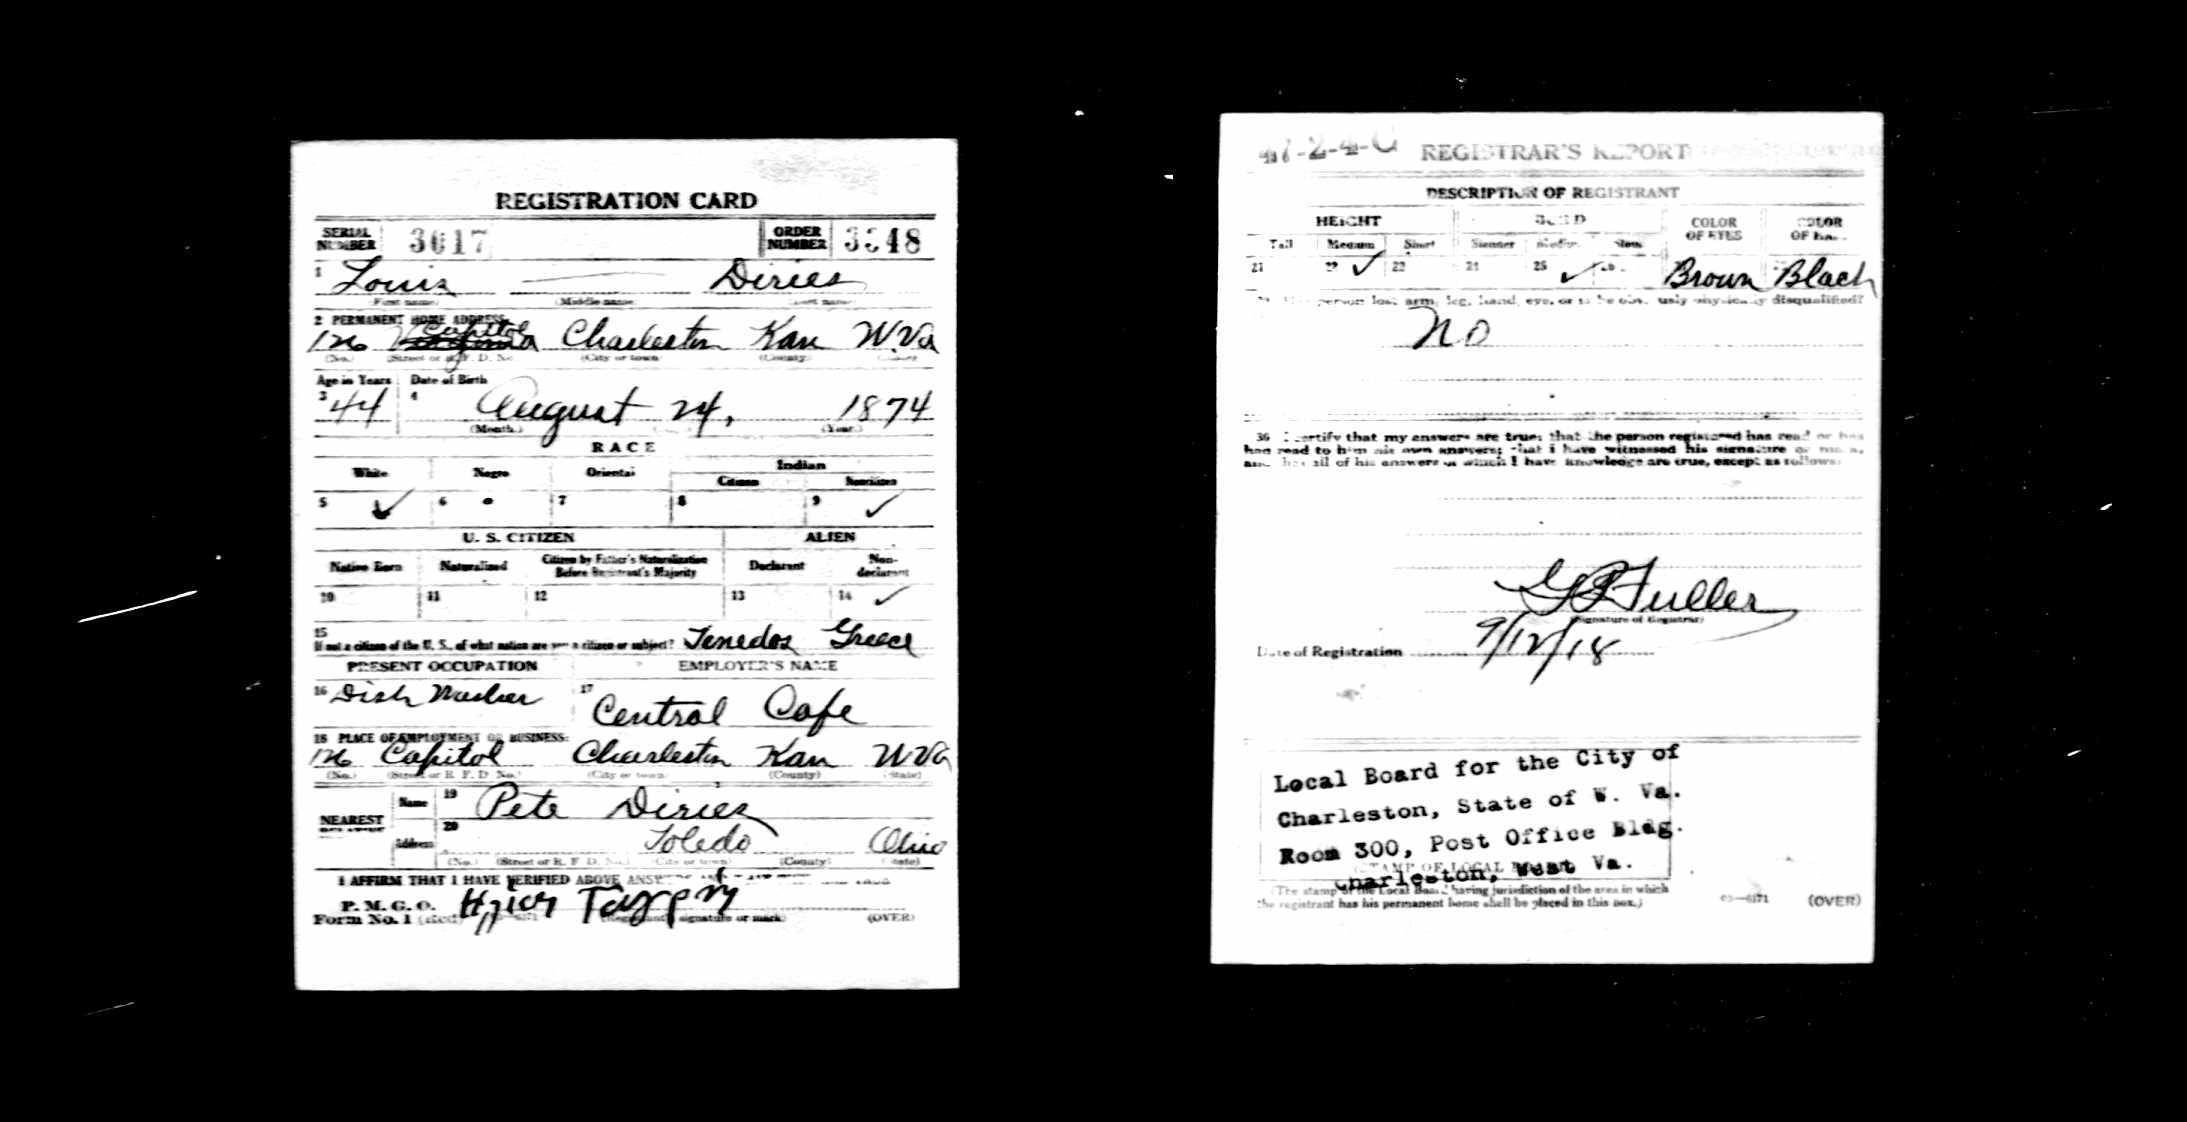 REGISTRATION CARD
SERIAL NUMBER 3617 ORDER NUMBER 3348
1 Louis Diries
(First name) (Middle name) (Last name)
2 PERMANENT HOME ADDRESS:
126 Capitol Charleston Kan W.Va
(No.) (Street or R. F. D. No.) (City or town) (County) (State)
Age in Years Date of Birth
3 44 4 August 24, 1874
(Month.) (Year.)
RACE
White Negro Oriental Indian
Citizen Noncitizen
5 ✓ 6 7 8 9 ✓
U. S. CITIZEN ALIEN
Native Born Naturalized Citizen by Father's Naturalization Before Registrant's Majority Declarant Non-declarant
10 11 12 13 14 ✓
15
If not a citizen of the U. S., of what nation are you a citizen or subject? Tenedos Greece
PRESENT OCCUPATION EMPLOYER'S NAME
16 Dish Washer 17 Central Cafe
18 PLACE OF EMPLOYMENT OR BUSINESS:
126 Capitol Charleston Kan W Va
(No.) (Street or R. F. D. No.) (City or town) (County) (State)
NEAREST Name 19 Pete Diries
Address 20 Toledo Ohio
(No.) (Street or R. F. D. No.) (City or town) (County) (State)
I AFFIRM THAT I HAVE VERIFIED ABOVE ANSWERS
P. M. G. O.
Form No. 1 (Registrant's signature or mark) (OVER)
47-2-4-C REGISTRAR'S REPORT
DESCRIPTION OF REGISTRANT
HEIGHT BUILD COLOR OF EYES COLOR OF HAIR
Tall Medium Short Slender Medium Stout
21 22 ✓ 23 24 25 ✓ 26 Brown Black
person lost arm, leg, hand, eye, or is he obviously physically disqualified?
No
30 I certify that my answers are true; that the person registered has read or has
had read to him his own answers; that I have witnessed his signature or mark,
and that all of his answers of which I have knowledge are true, except as follows:
Fuller
(Signature of Registrar)
Date of Registration 9/12/18
Local Board for the City of
Charleston, State of W. Va.
Room 300, Post Office Bldg.
(STAMP OF LOCAL BOARD)
Charleston, West Va.
(The stamp of the Local Board having jurisdiction of the area in which
the registrant has his permanent home shall be placed in this box.)
(OVER)